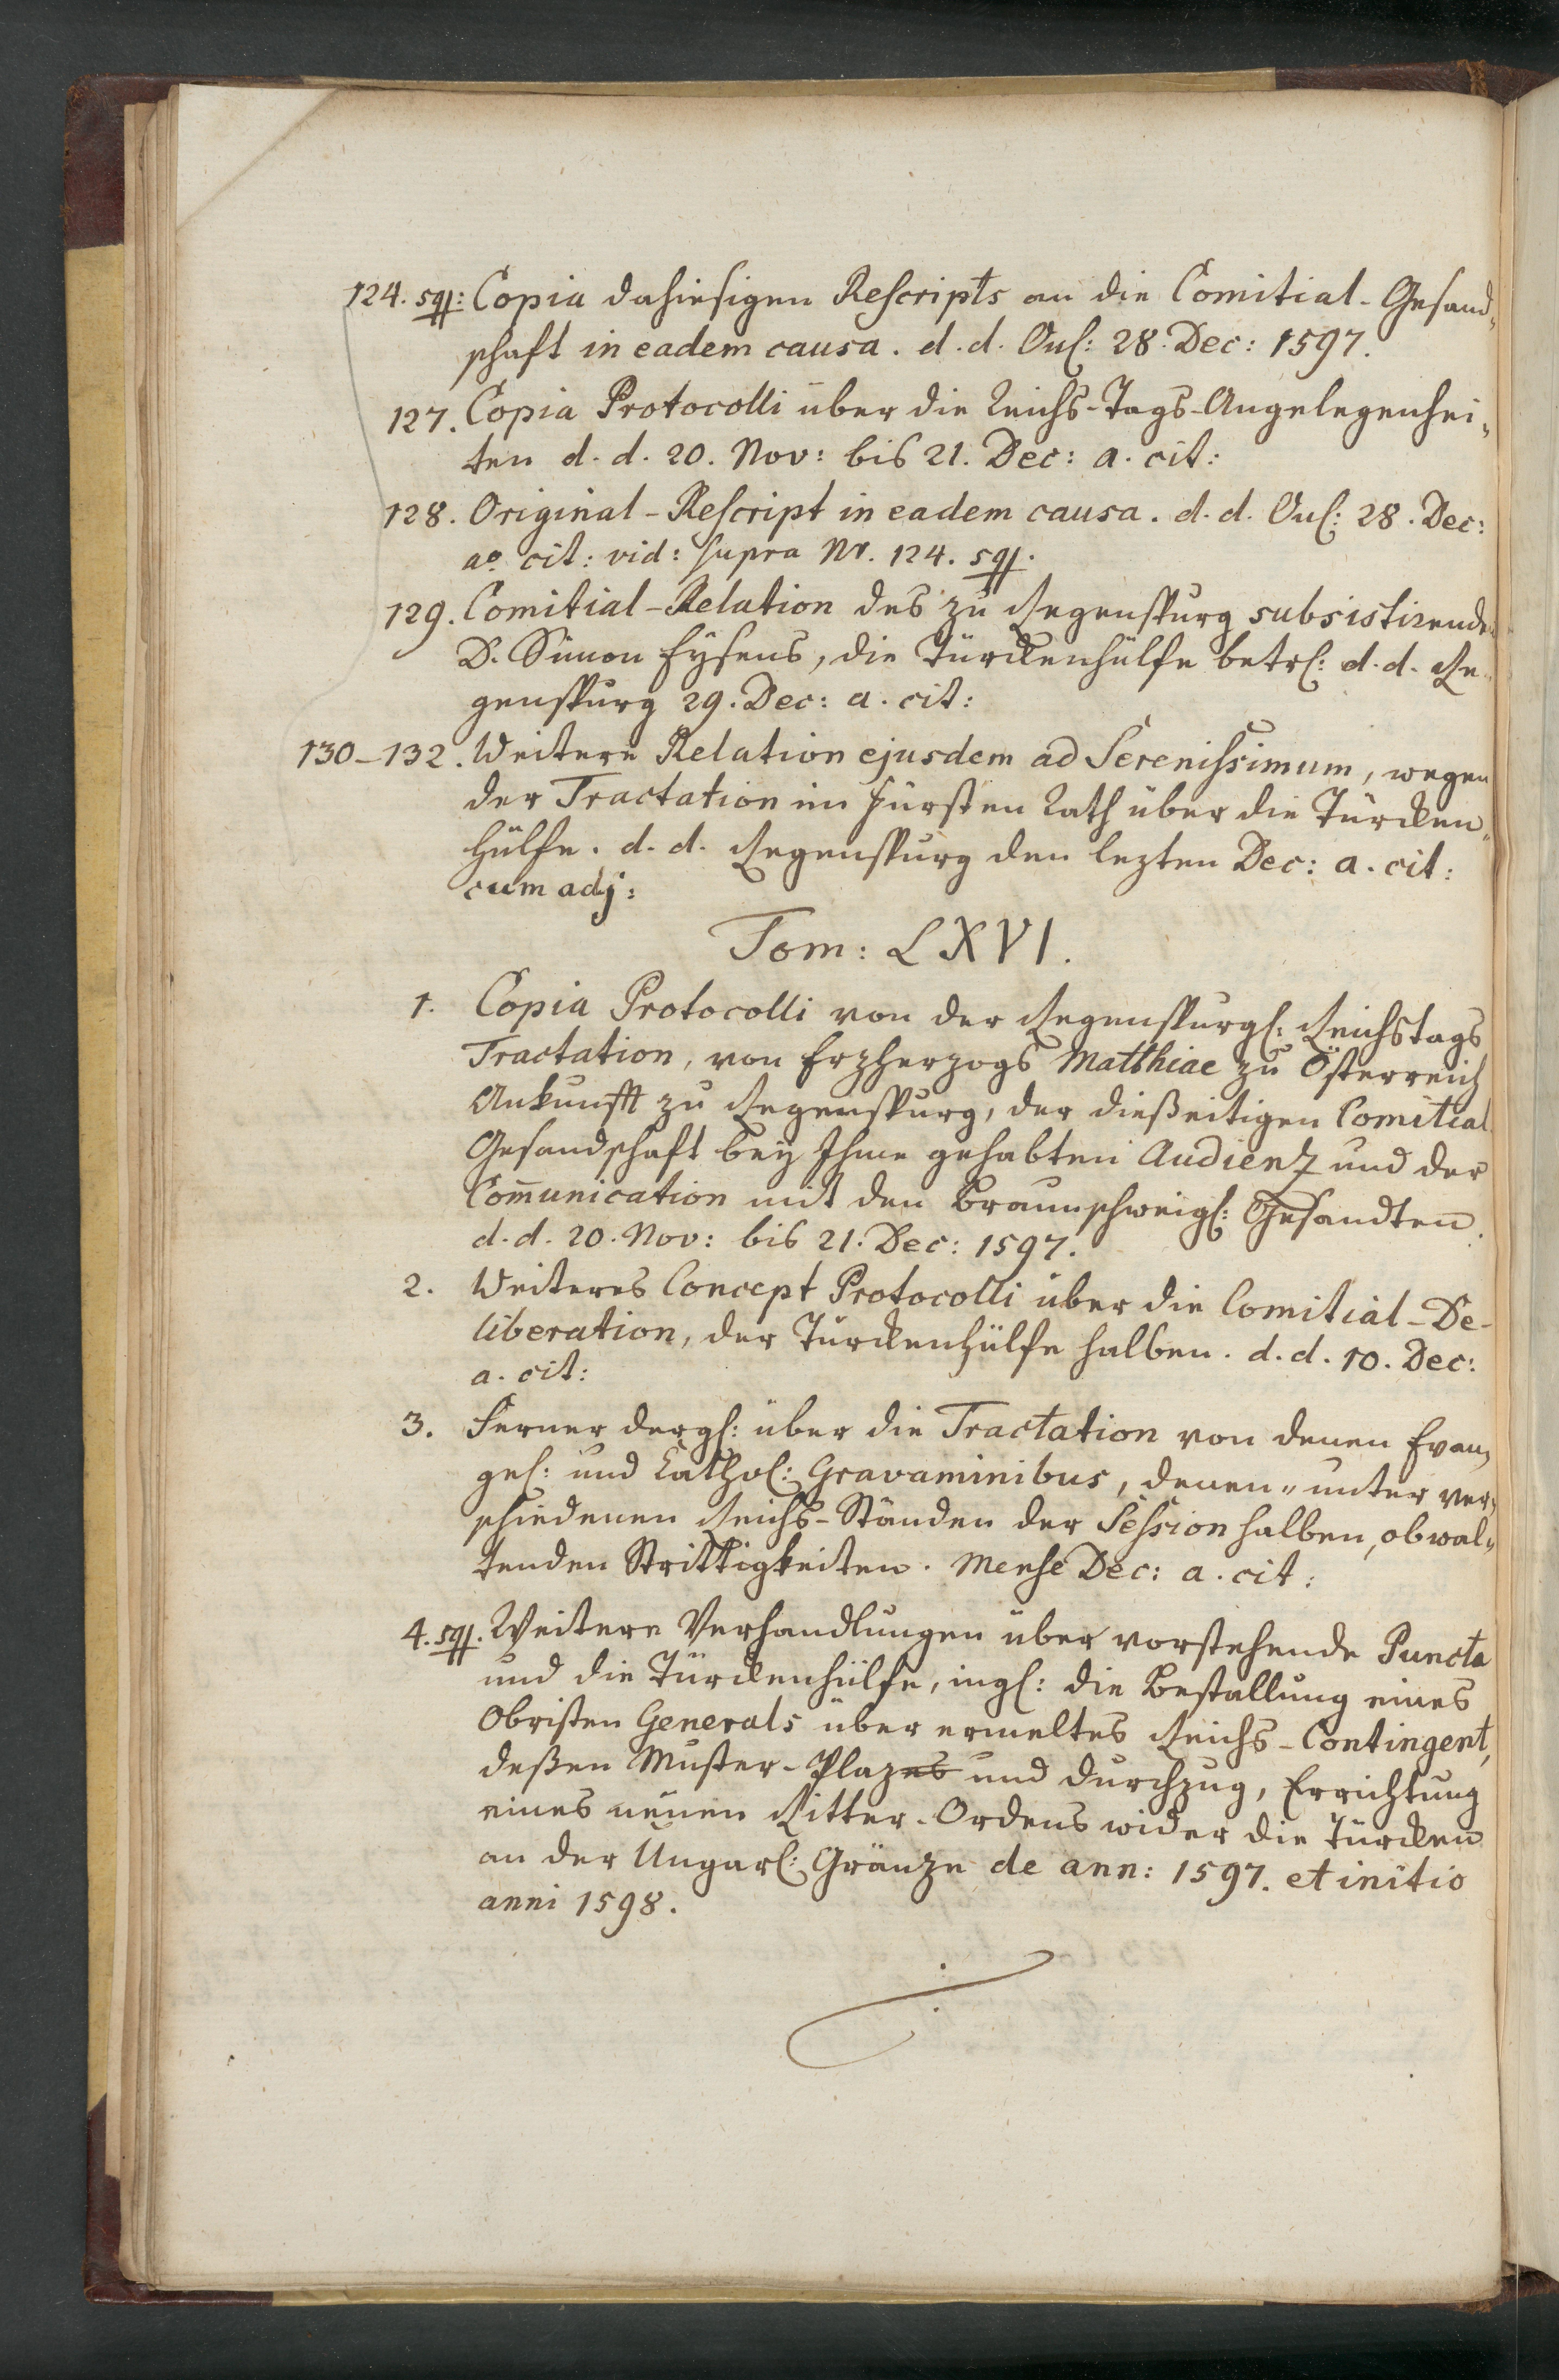 124. sqq: Copia dahiesigen Rescripts an die Comitial-Gesand„
schaft in eadem causa. d. d. Onl: 28. Dec: 1597.
127. Copia Protocolli über die Reichs-Tags-Angelegenhei„
ten d. d. 20. Nov: bis 21. Dec: a. cit:
128. Original-Rescript in eadem causa. d. d. Onl: 28. Dec:
ao. cit: vid: supra Nr. 124. sqq.
129. Comitial-Relation des zu Regenspurg subsistirenden
D. Simon Eysens, die Türckenhülfe betrl: d. d. Re„
genspurg 29. Dec: a. cit:
130-132. Weitere Relation ejusdem ad Serenissimum, wegen
der Tractation im Fürsten Rath über die Türcken„
hülfe. d. d. Regenspurg den lezten Dec: a. cit:
cum adj:
Tom: LXVI.
1. Copia Protocolli von der Regenspurgl: Reichstags
Tractation, von Erzherzogs Matthiae zu Österreich
Ankunfft zu Regenspurg, der dießeitigen Comitial
Gesandschaft bey Ihme gehabten Audienz und der
Com̄unication mit den Braunschweigl: Gesandten.
d. d. 20. Nov: bis 21. Dec: 1597.
2. Weiteres Concept Protocolli über die Comitial-De-
liberation, der Türckenhülfe halben. d. d. 10. Dec:
a. cit:
3. Ferner dergl: über die Tractation von denen Evan„
gel: und Cathol: Gravaminibus, denen „ unter ver„
schiedenen Reichs-Ständen der Session halben, obwal„
tenden Strittigkeiten. Mense Dec: a. cit:
4. sqq. Weitere Verhandlungen über vorstehende Puncta
und die Türckenhülfe, ingl: die Bestallung eines
Obristen Generals über ermeltes Reichs-Contingent,
deßen Muster-Plazes und Durchzug, Errichtung
eines neuen Ritter-Ordens wider die Türcken
an der Ungarl: Gränze de ann: 1597. et initio
anni 1598.